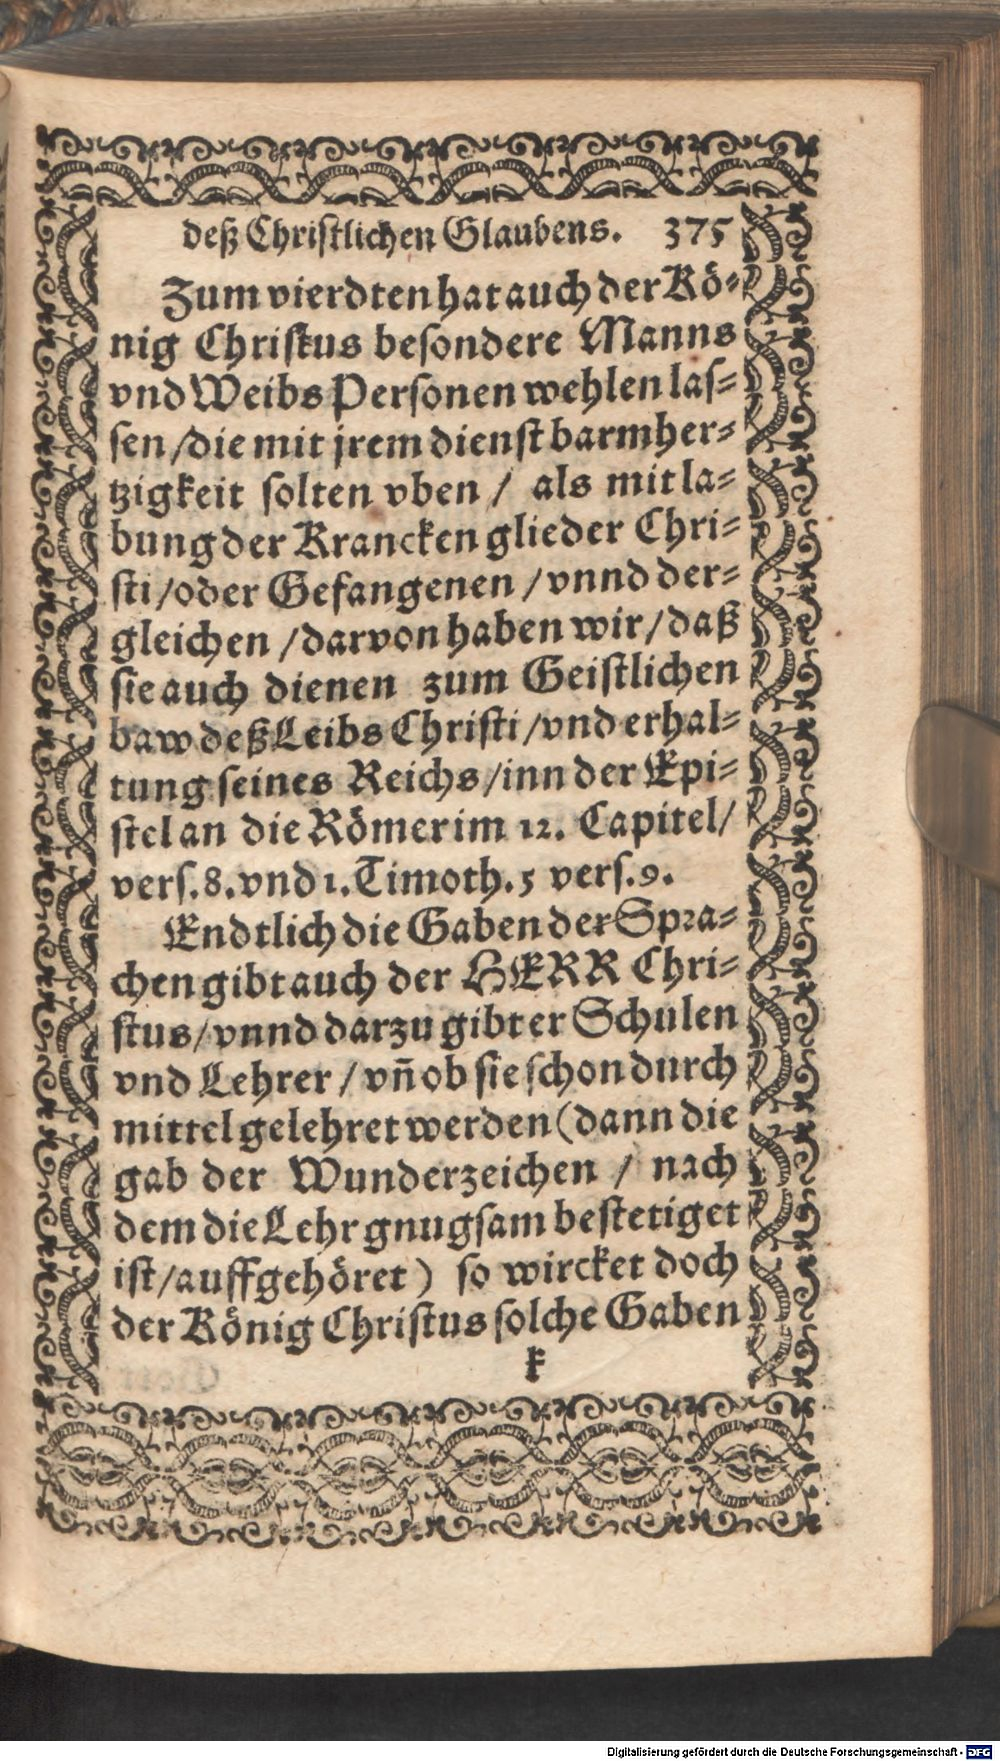 deß Christlichen Glaubens. 375
Zum vierdten hat auch der Kö-
nig Christus besondere Manns
vnd Weibs Personen wehlen las-
sen / die mit jrem dienst barmher-
tzigkeit solten vben / als mit la-
bung der Krancken glieder Chri-
sti / oder Gefangenen / vnnd der-
gleichen / darvon haben wir / daß
sie auch dienen zum Geistlichen
baw deß Leibs Christi / vnd erhal-
tung seines Reichs / inn der Epi-
stel an die Römer im 12. Capitel /
vers. 8. vnd 1. Timoth. 5 vers. 9.
Endtlich die Gaben der Spra-
chen gibt auch der HERR Chri-
stus / vnnd darzu gibt er Schulen
vnd Lehrer / vñ ob sie schon durch
mittel gelehret werden (dann die
gab der Wunderzeichen / nach
dem die Lehr gnugsam bestetiget
ist / auffgehöret) so wircket doch
der König Christus solche Gaben
k
Digitalisierung gefördert durch die Deutsche Forschungsgemeinschaft - DFG